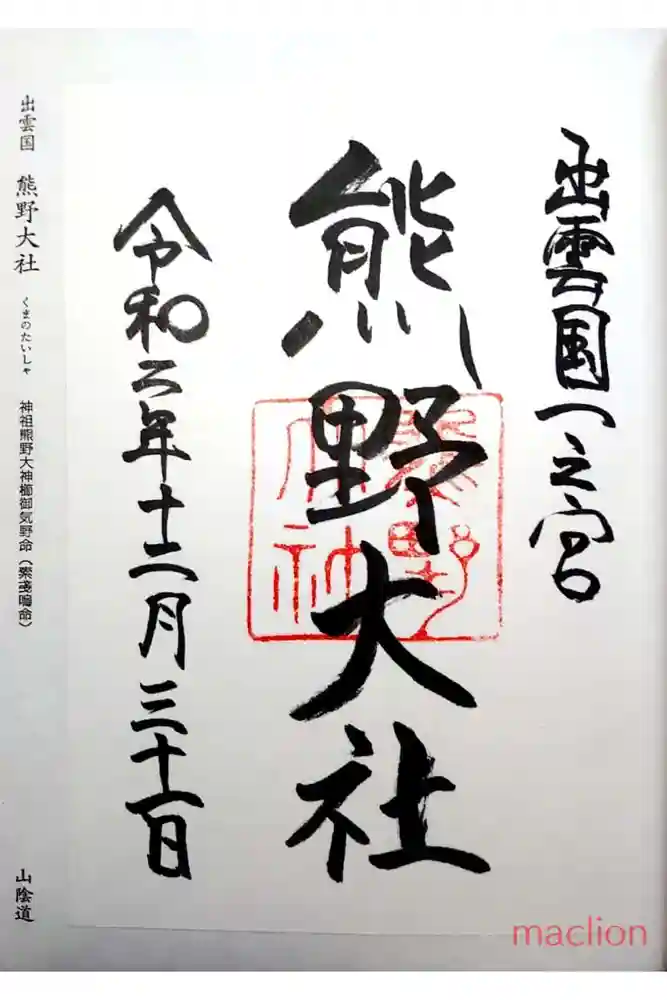 出雲国一之宮
熊野大社
熊野
大社
令和二年十二月三十一日
出雲国 熊野大社 くまのたいしゃ 神祖熊野大神櫛御気野命(素戔嗚命) 山陰道
maclion